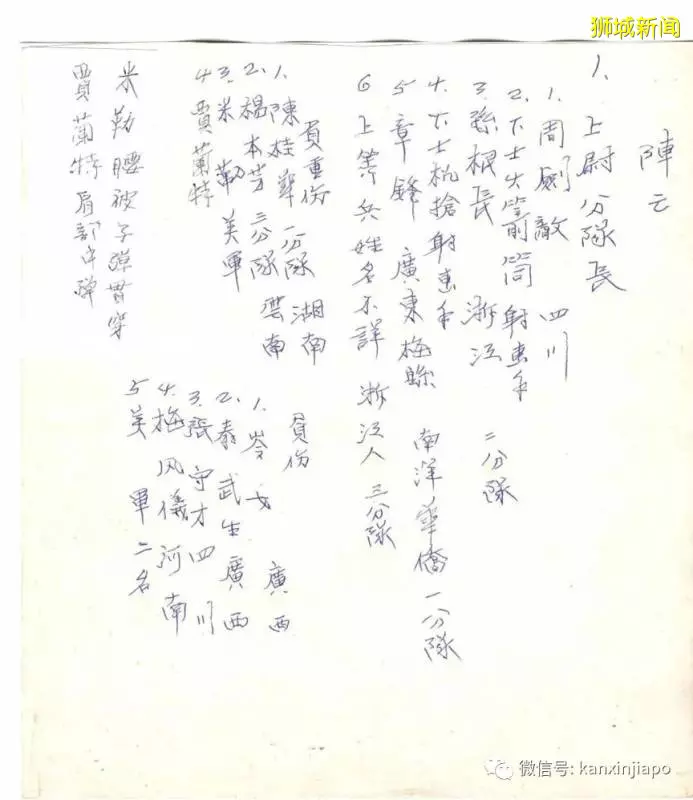 狮城新闻
陣亡
1. 上尉分隊長
1. 周劍敵 四川
2. 下士火箭筒射击手
3. 孫根長 浙江 二分隊
4. 下士机搶射击手
5 章鋒 廣東梅縣 南洋華僑一分隊
6 上等兵姓名不詳 浙江人 三分隊
負重伤
1. 陳桂華 一分隊 湖南
2. 楊本芳 三分隊 雲南
3. 米勒 美軍
4 賈蘭特
負伤
1. 岑 廣西
2. 秦武生 廣西
3. 張守才 四川
4. 梅风儀 河南
5 美軍二名
米勒腰被子弹貫穿
賈蘭特肩部中弹
微信号: kanxinjiapo